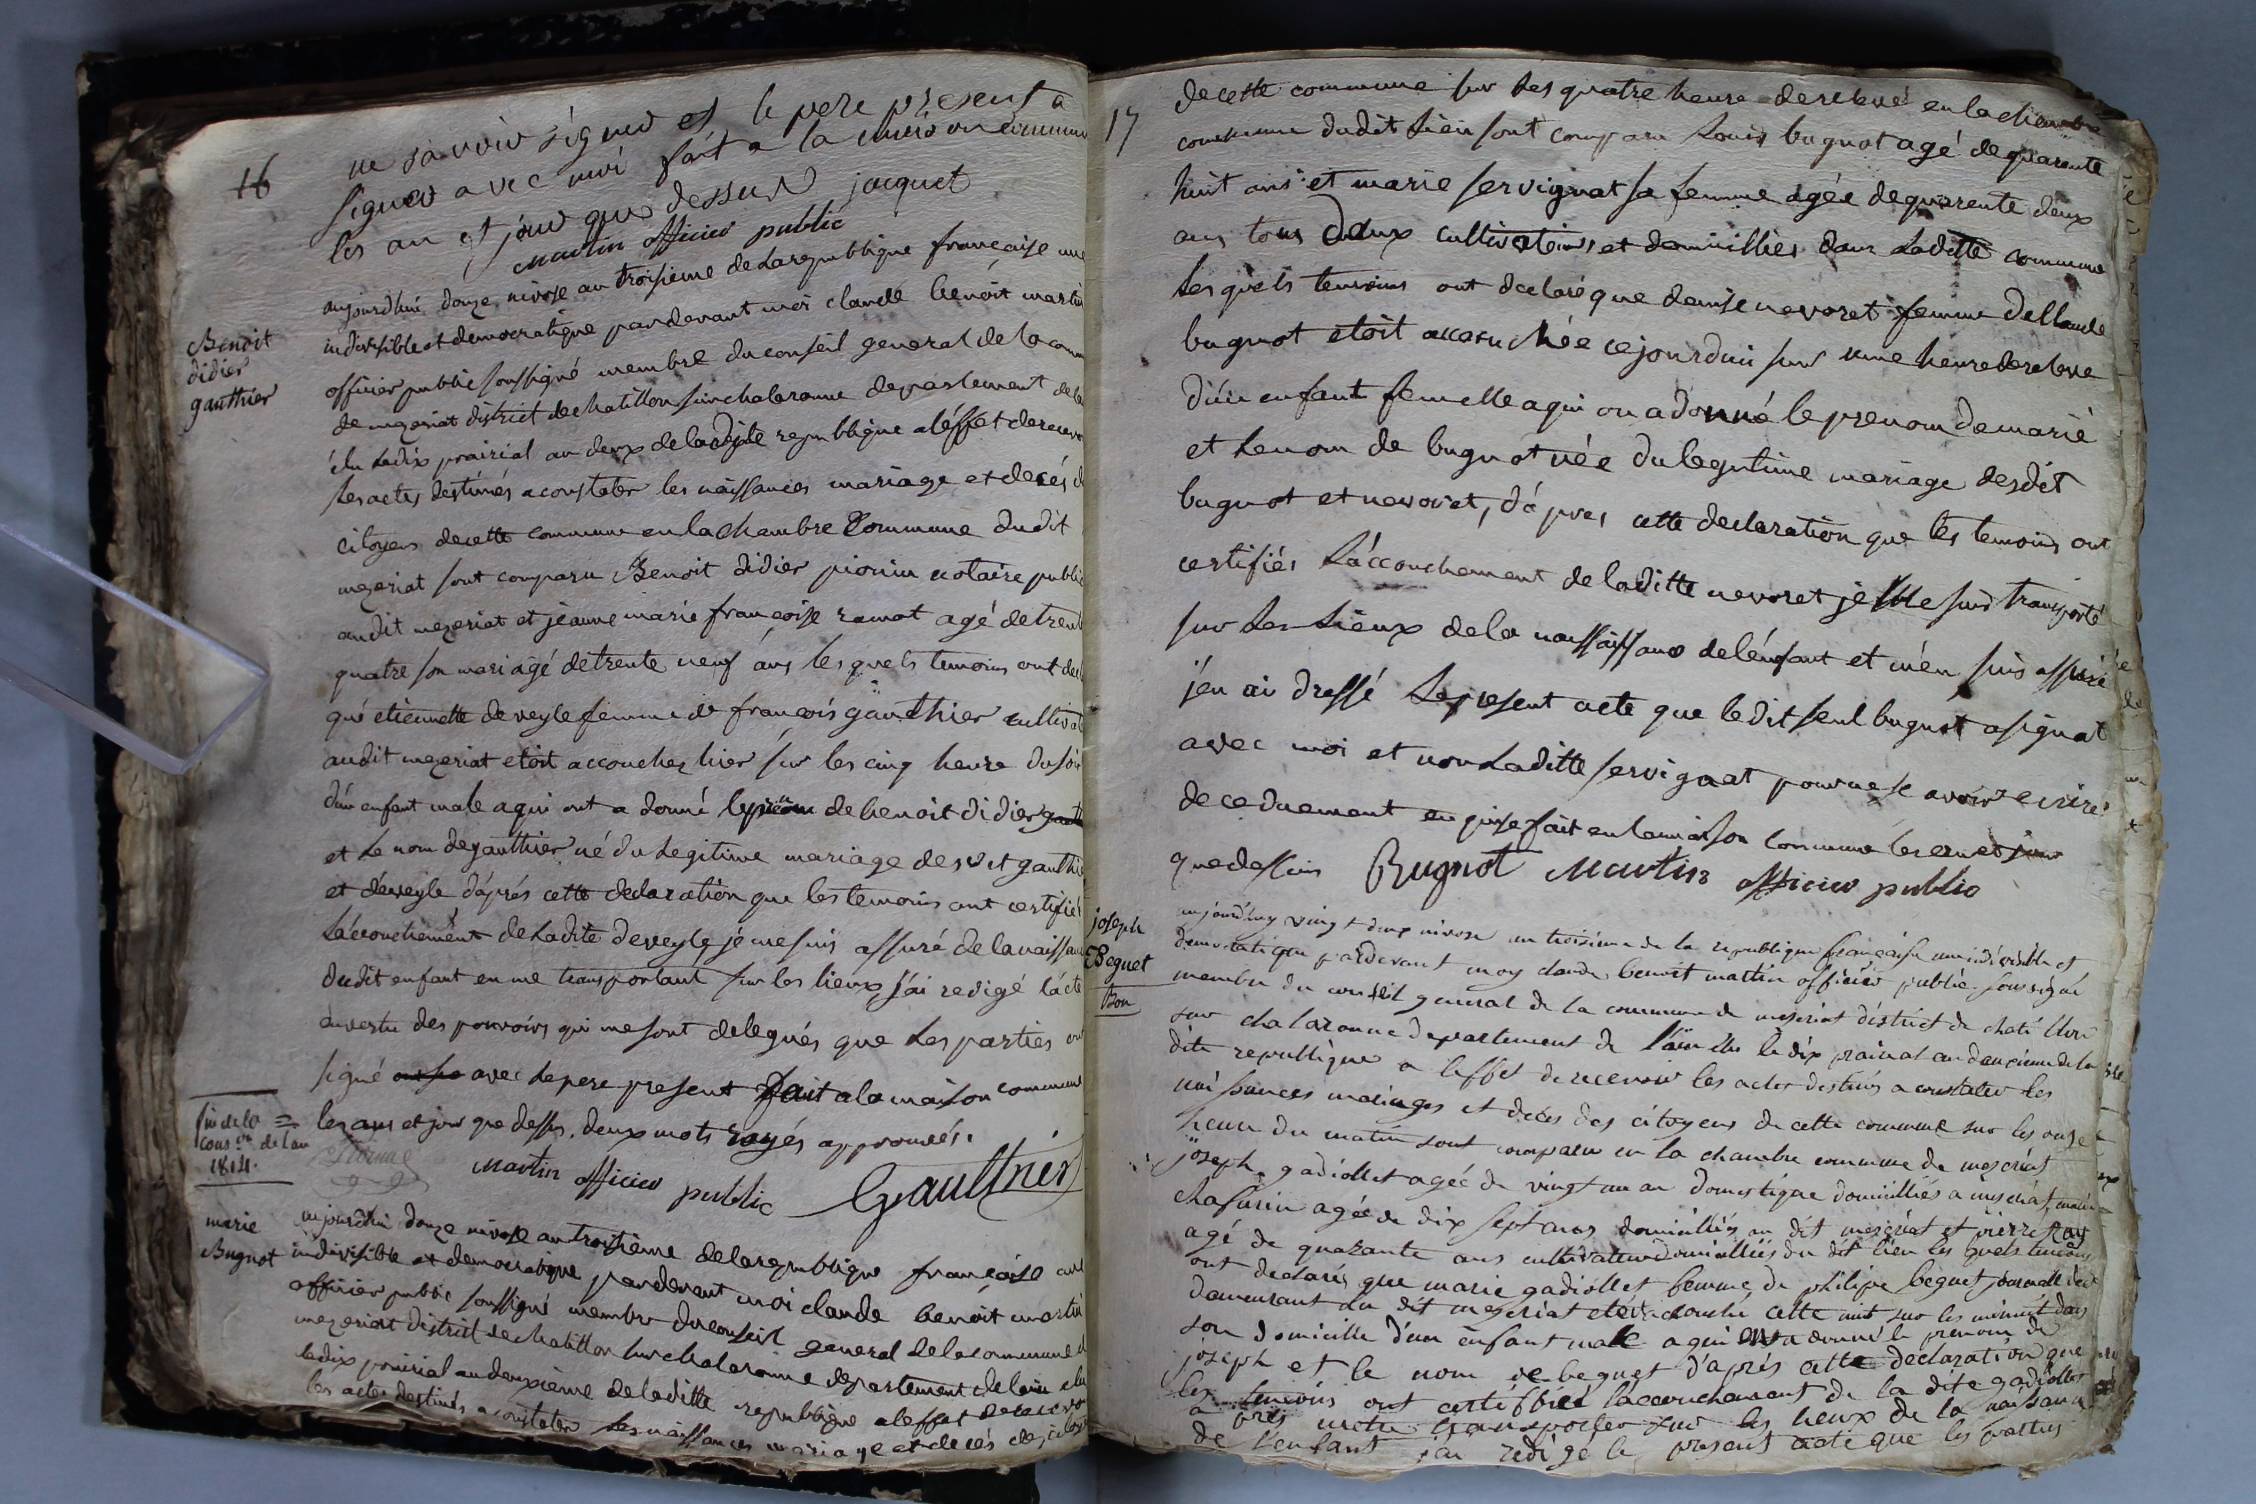 16
ne savoir signer et le pere present a
signer avec moi fait a la maison commune
les an et jour que dessus jacquet
Martin officier public
Benoit
didier
gauthier
aujourdhui douze nivose an troisieme de la republique française une
indivisible et democratique pardevant moi claude benoit martin
officier public soussigné membre du conseil general de la com
de mezeriat district de chatillon sur chalaronne departement de l
élu le dix prairial an deux de la dite republique a l'effet de recevo
les actes destinés a constater les naissances mariage et decés d
citoyens de cette commune en la chambre Commune du dit
mezeriat sont comparu Benoit didier pionin notaire public
au dit mezeriat et jeanne marie françoise ramot agé de trente
quatre son mari agé de trente neuf ans les quels temoins ont decl
que etiennette deveyle femme de francois gauthier cultivat
au dit mezeriat etoit accouchez hier sur les cinq heure du soir
d'un enfant male a qui ont a donné le prenom de benoit didier
et le nom de gauthier né du legitime mariage desdit gauthier
et deveyle d'aprés cette declaration que les temoins ont certifiés
l'accouchement de ladite deveyle, je me suis assuré de la naissan
dudit enfant en me transportant sur les lieux, j'ai redigé l'acte
en vertu des pouvoirs qui me sont delegués que les parties on
signé avec le pere present fait a la maison commune
les ans et jour que dessus. deux mots rayés approuvés.
fin de la
cons.on de l'an
1814.
Martin officier public Gaulthier
marie
Bugnot
aujourdhui douze nivose an troisieme de la republique française une
indivisible et democratique pardevant moi claude benoit martin
officier public soussigné membre du conseil general de la commune d
mezeriat district de chatillon sur chalaronne departement de l'ain élu
le dix prairial an deuxième de la ditte republique a l'effet de recevo
les actes destinés a constater les naissances mariage et decés des citoye
17
de cette commune sur les quatre heure de relevé en la chambre
commune du dit lieu sont comparu Louis bugnot agé de quarante
huit ans et marie servignat sa femme agée de quarente deux
ans tous deux cultivateurs et domicilliés dans la ditte commune
les quels temoins ont declaré que denise nevoret femme de Claude
bugnot etoit accouchée ce jourdhui sur une heure de releve
d'un enfant femelle a qui on a donné le prenom de marie
et le nom de bugnot née du legitime mariage desdit
bugnot et nevoret, d'aprés cette declaration que les temoins ont
certifiés l'accouchement de la ditte nevoret je me suis transporté
sur les lieux de la naissance de l'enfant et m'en suis assuré
j'en ai dressé le present acte que le dit seul bugnot a signat
avec moi et non la ditte servignat pour ne savoir ecrire
de ce duement enquise fait en la maison commune les an et jour
que dessus Bugnot Martin officier public
joseph
Beguet
Bon
aujourd'huy vingt deux nivose an troisieme de la republique française une indivisible et
democratique pardevant moy claude benoit martin officier public soussigné
membre du conseil general de la commune de meseriat district de chatillon
sur chalaronne departement de l'ain élu le dix prairial an deuxieme de la
dite republique a l'effet de recevoir les actes destinés a constater les
naissances mariages et deces des citoyens de cette commune sur les onze
heure du matin sont comparu en la chambre commune de meseriat
joseph gadiollet agée de vingt un an domestique domicilliés a meseriat
agée de dix sept ans domicilliés au dit meseriat et pierre
agé de quarante ans cultivateur domicilliés du dit lieu les quels temoins
ont declarés que marie gadiollet femme de philipe beguet
demeurant du dit meseriat cette nuit sur les minuit dans
son domicille d'un enfant male a qui on a donné le prenom de
joseph et le nom de beguet d'aprés cette declaration que
les temoins ont certiffiés l'accouchement de la dite gadiollet
a pres metre transporter sur les lieux de la naissance
de l'enfant j'ai redigé le present acte que les parties